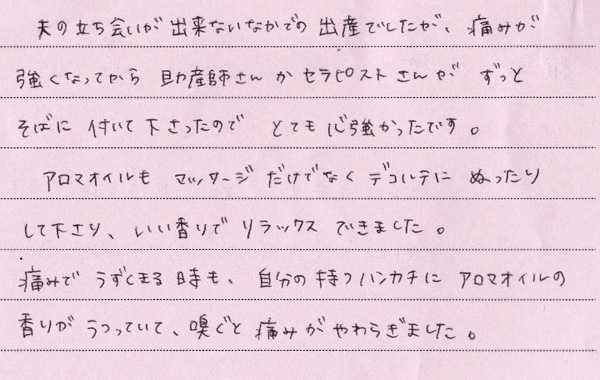 夫の立ち会いが出来ないなかでの出産でしたが、痛みが
強くなってから助産師さんかセラピストさんがずっと
そばに付いて下さったのでとても心強かったです。
アロマオイルもマッサージだけでなくデコルテにぬったり
して下さり、いい香りでリラックスできました。
痛みでうずくまる時も、自分の持つハンカチにアロマオイルの
香りがうつっていて、嗅ぐと痛みがやわらぎました。